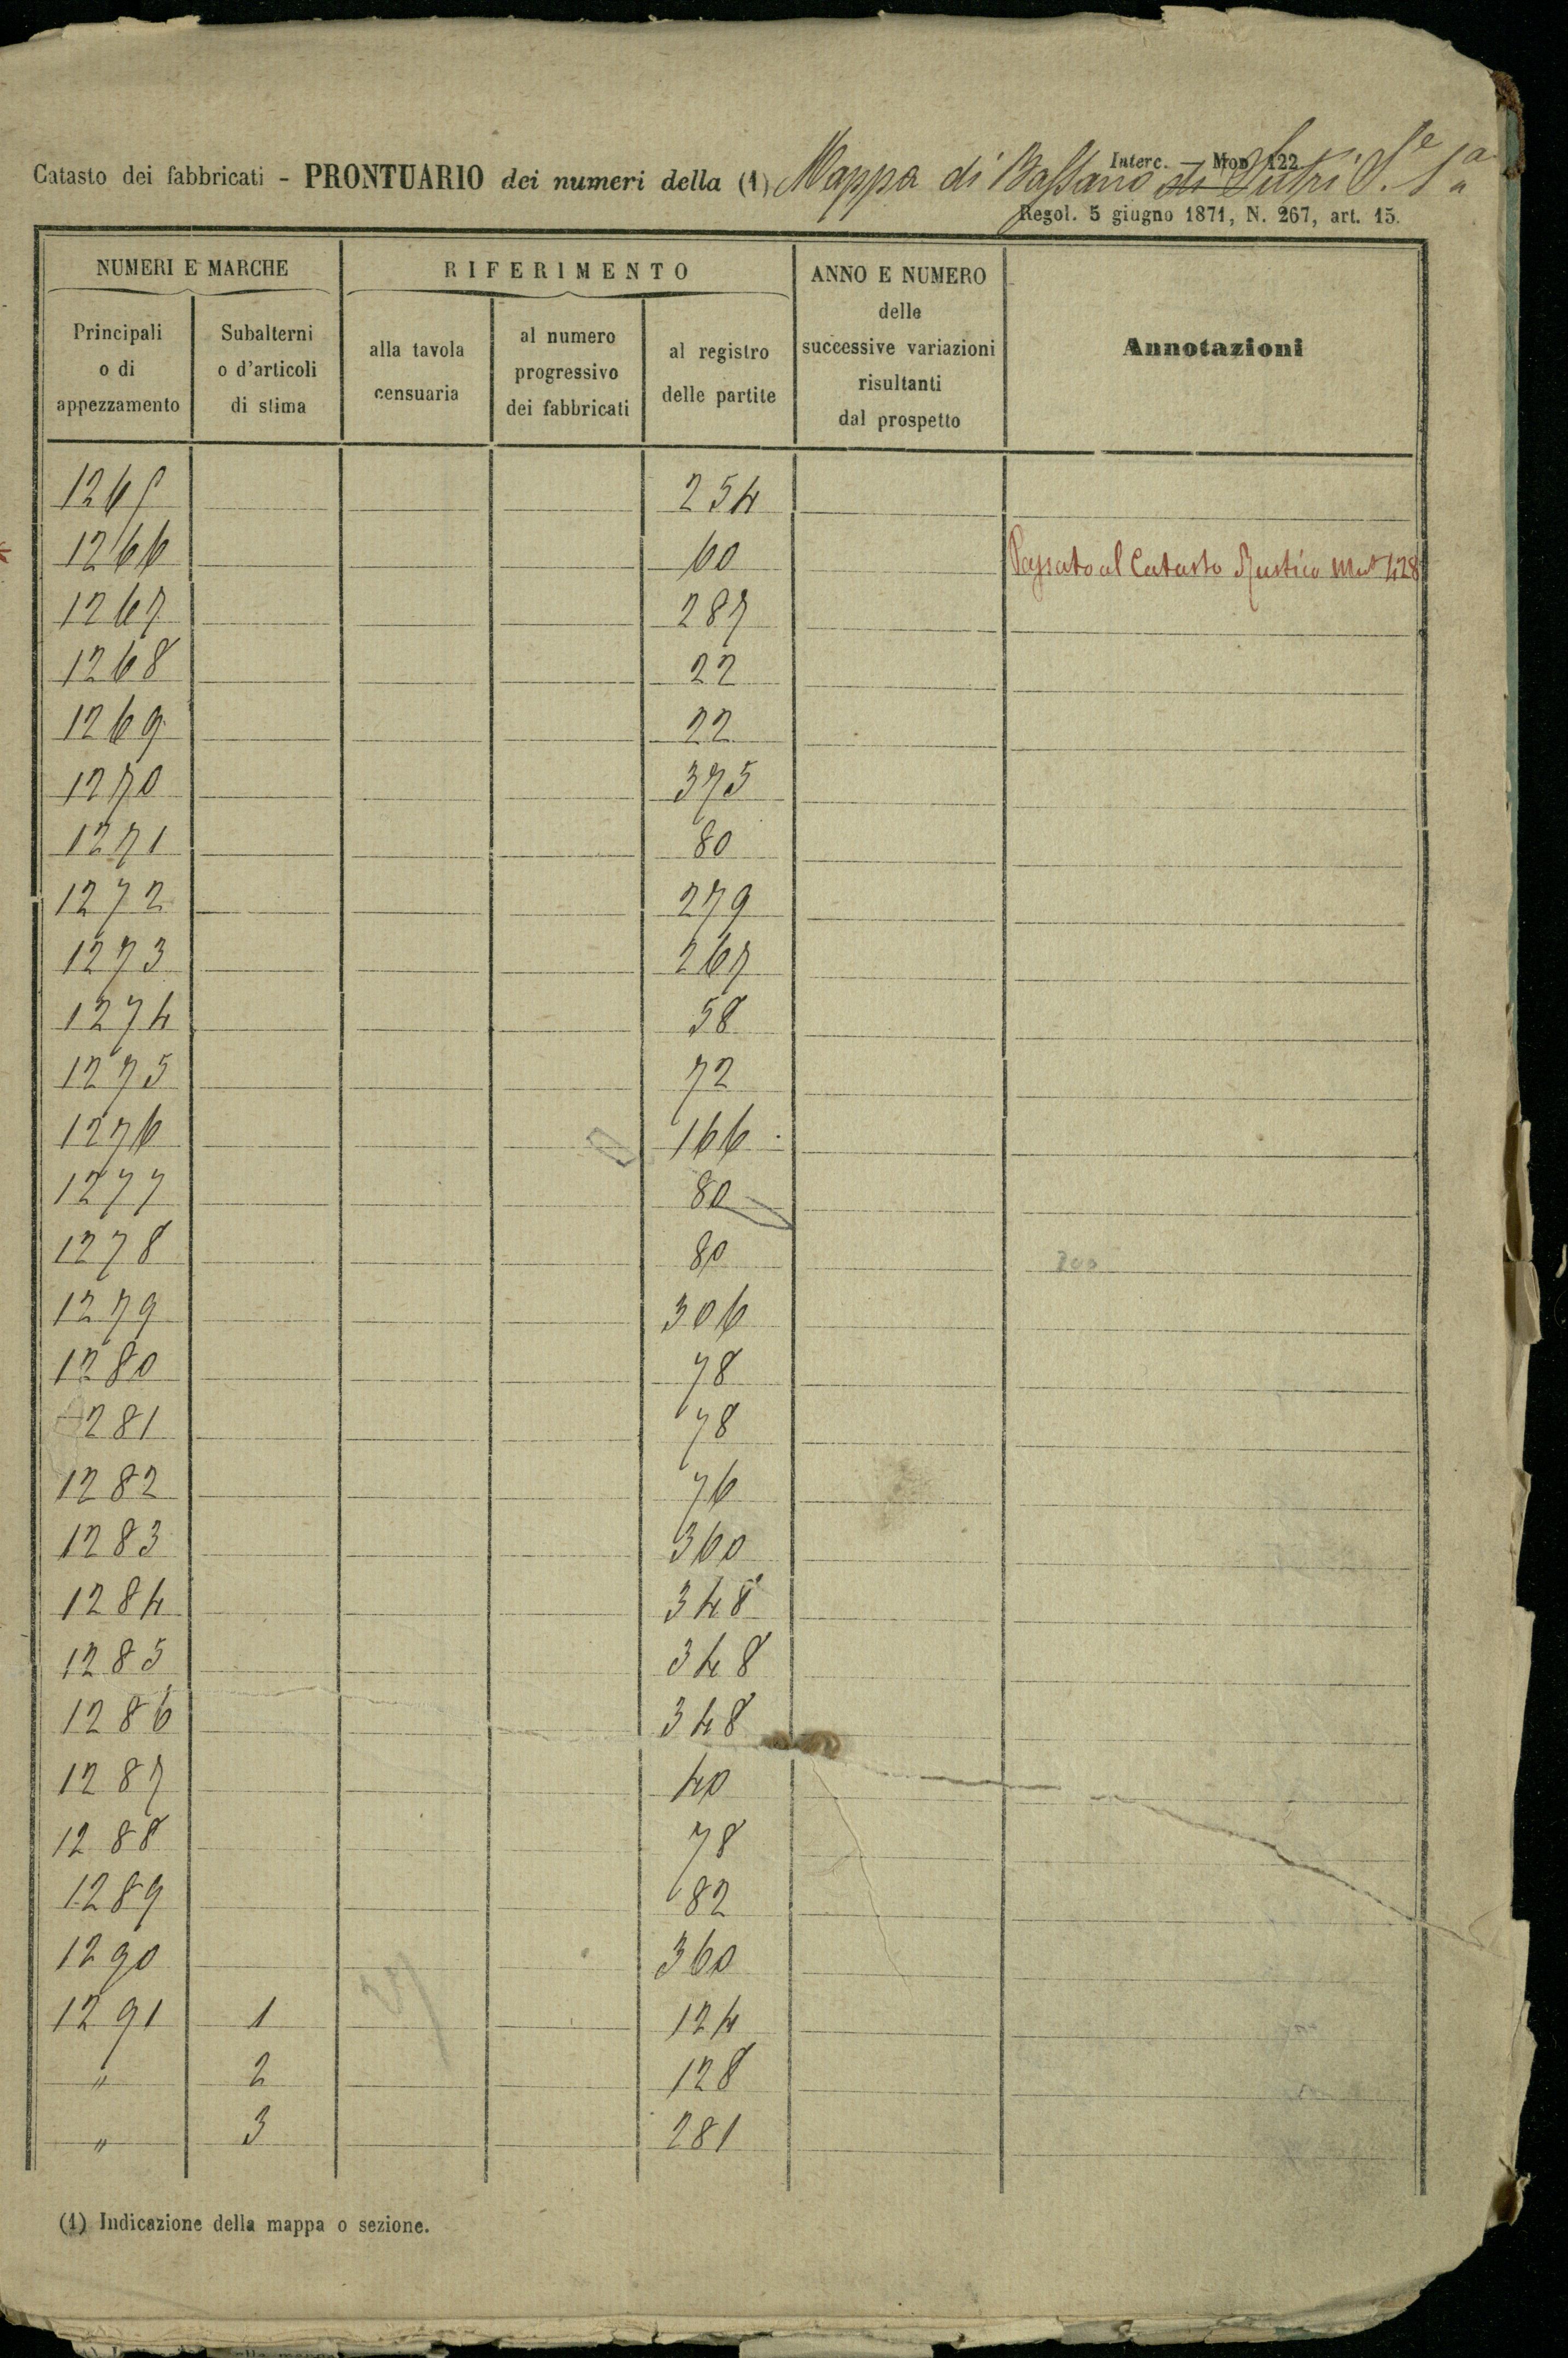 Interc. — Mod. 122
Catasto dei fabbricati - PRONTUARIO dei numeri della (1) Mappa di Bassano di Sutri S.e 1a
Regol. 5 giugno 1871, N. 267, art. 15.
NUMERI E MARCHE
RIFERIMENTO
ANNO E NUMERO
delle
successive variazioni
risultanti
dal prospetto
Annotazioni
Principali
o di
appezzamento
Subalterni
o d'articoli
di stima
alla tavola
censuaria
al numero
progressivo
dei fabbricati
al registro
delle partite
1265 254
1266 60 Passato al Catasto Rustico 428
1267 287
1268 22
1269 22
1270 375
1271 80
1272 279
1273 267
1274 58
1275 72
1276 166
1277 80
1278 80
1279 306
1280 78
1281 78
1282 76
1283 360
1284 348
1285 348
1286 348
1287 40
1288 78
1289 82
1290 360
1291 1 124
" 2 128
" 3 281
(1) Indicazione della mappa o sezione.